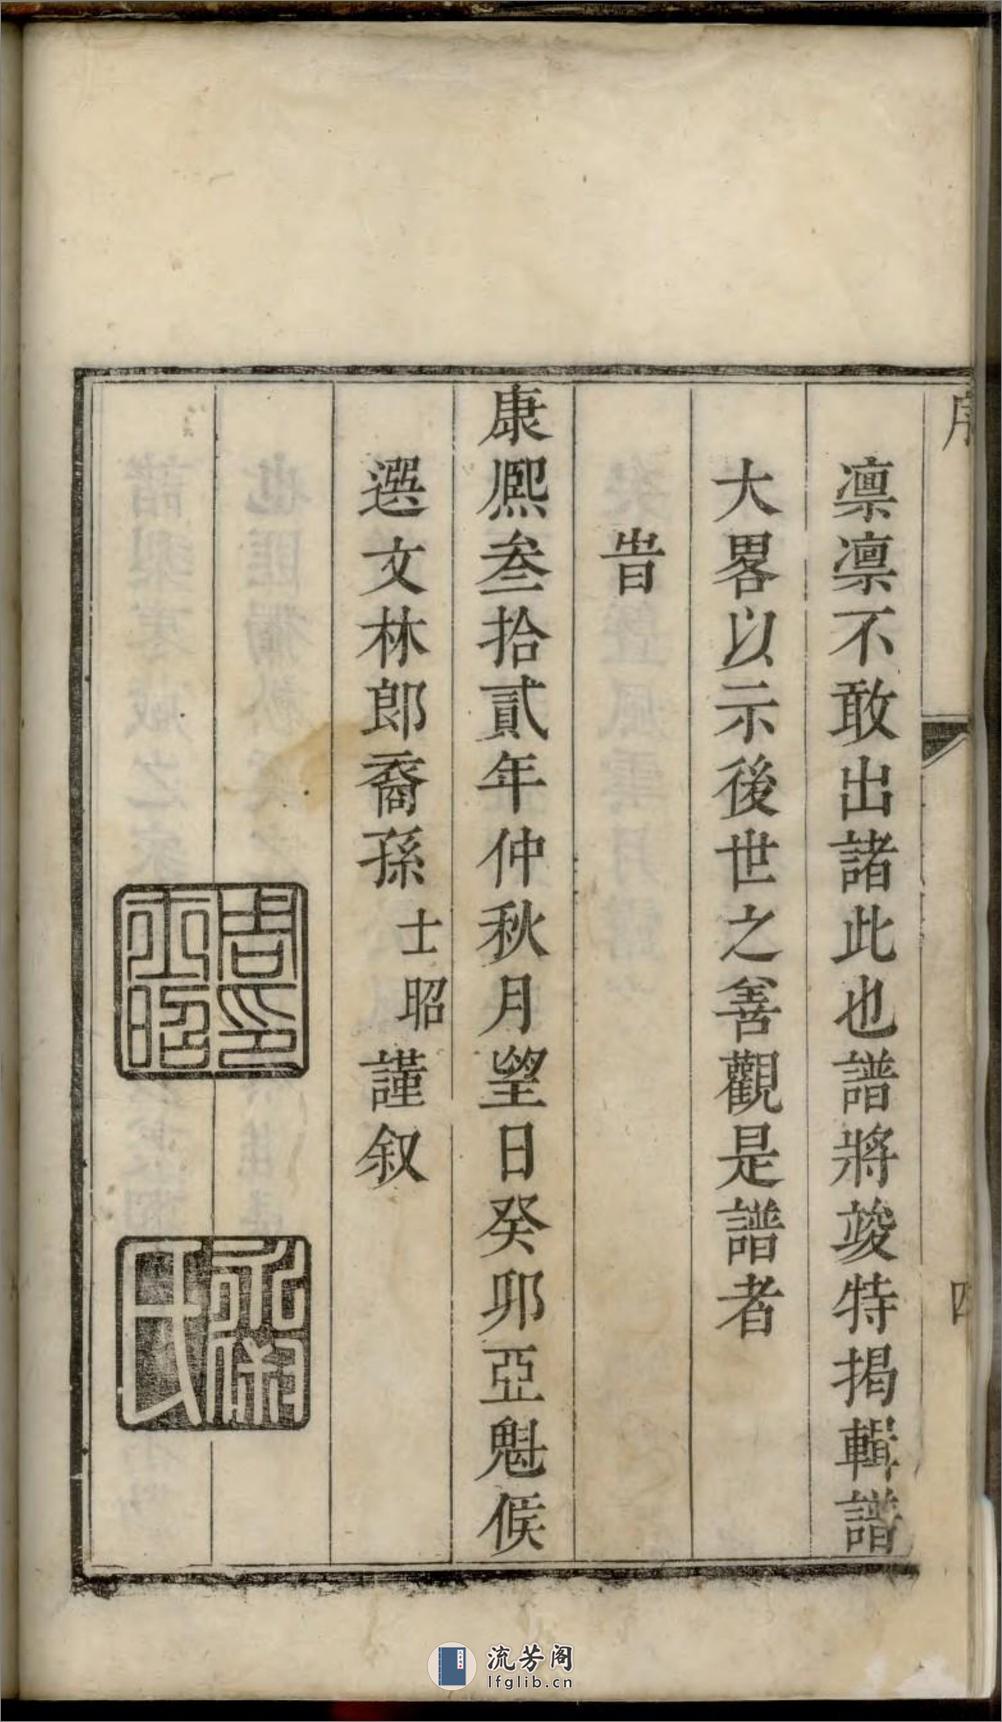 序
四
凛凛不敢出諸此也譜將竣特揭輯譜
大畧以示後世之善觀是譜者
旹
康熙叁拾貳年仲秋月望日癸卯亞魁候
選文林郎裔孫士昭謹叙
周印士昭
氏
流芳阁
lfglib.cn